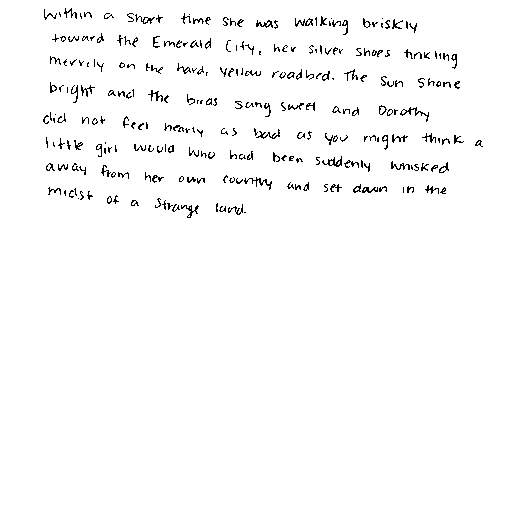 Within a short time she was walking briskly
toward the Emerald City, her silver shoes tinkling
merrily on the hard, yellow roadbed. The sun shone
bright and the birds sang sweet and Dorothy
did not feel nearly as bad as you might think a
little girl would who had been suddenly whisked
away from her own country and set down in the
midst of a strange land.